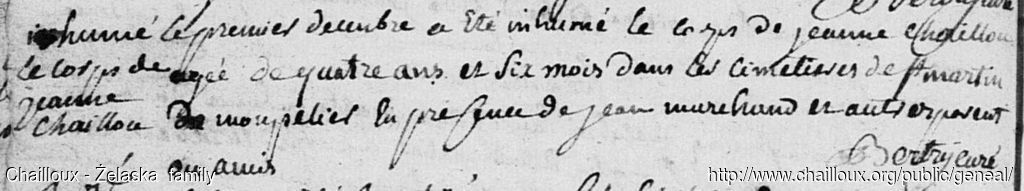 inhumé
le corps de
jeanne
Chaillou
Le premier decembre a Eté inhumé le corps de jeanne Chaillou
agée de quatre ans et six mois dans les cimetisses de st martin
de monpelies En presence de jean marchand et auts
ou amis
Bertry curé
Chailloux - Żelaska family
http://www.chailloux.org/public/geneal/